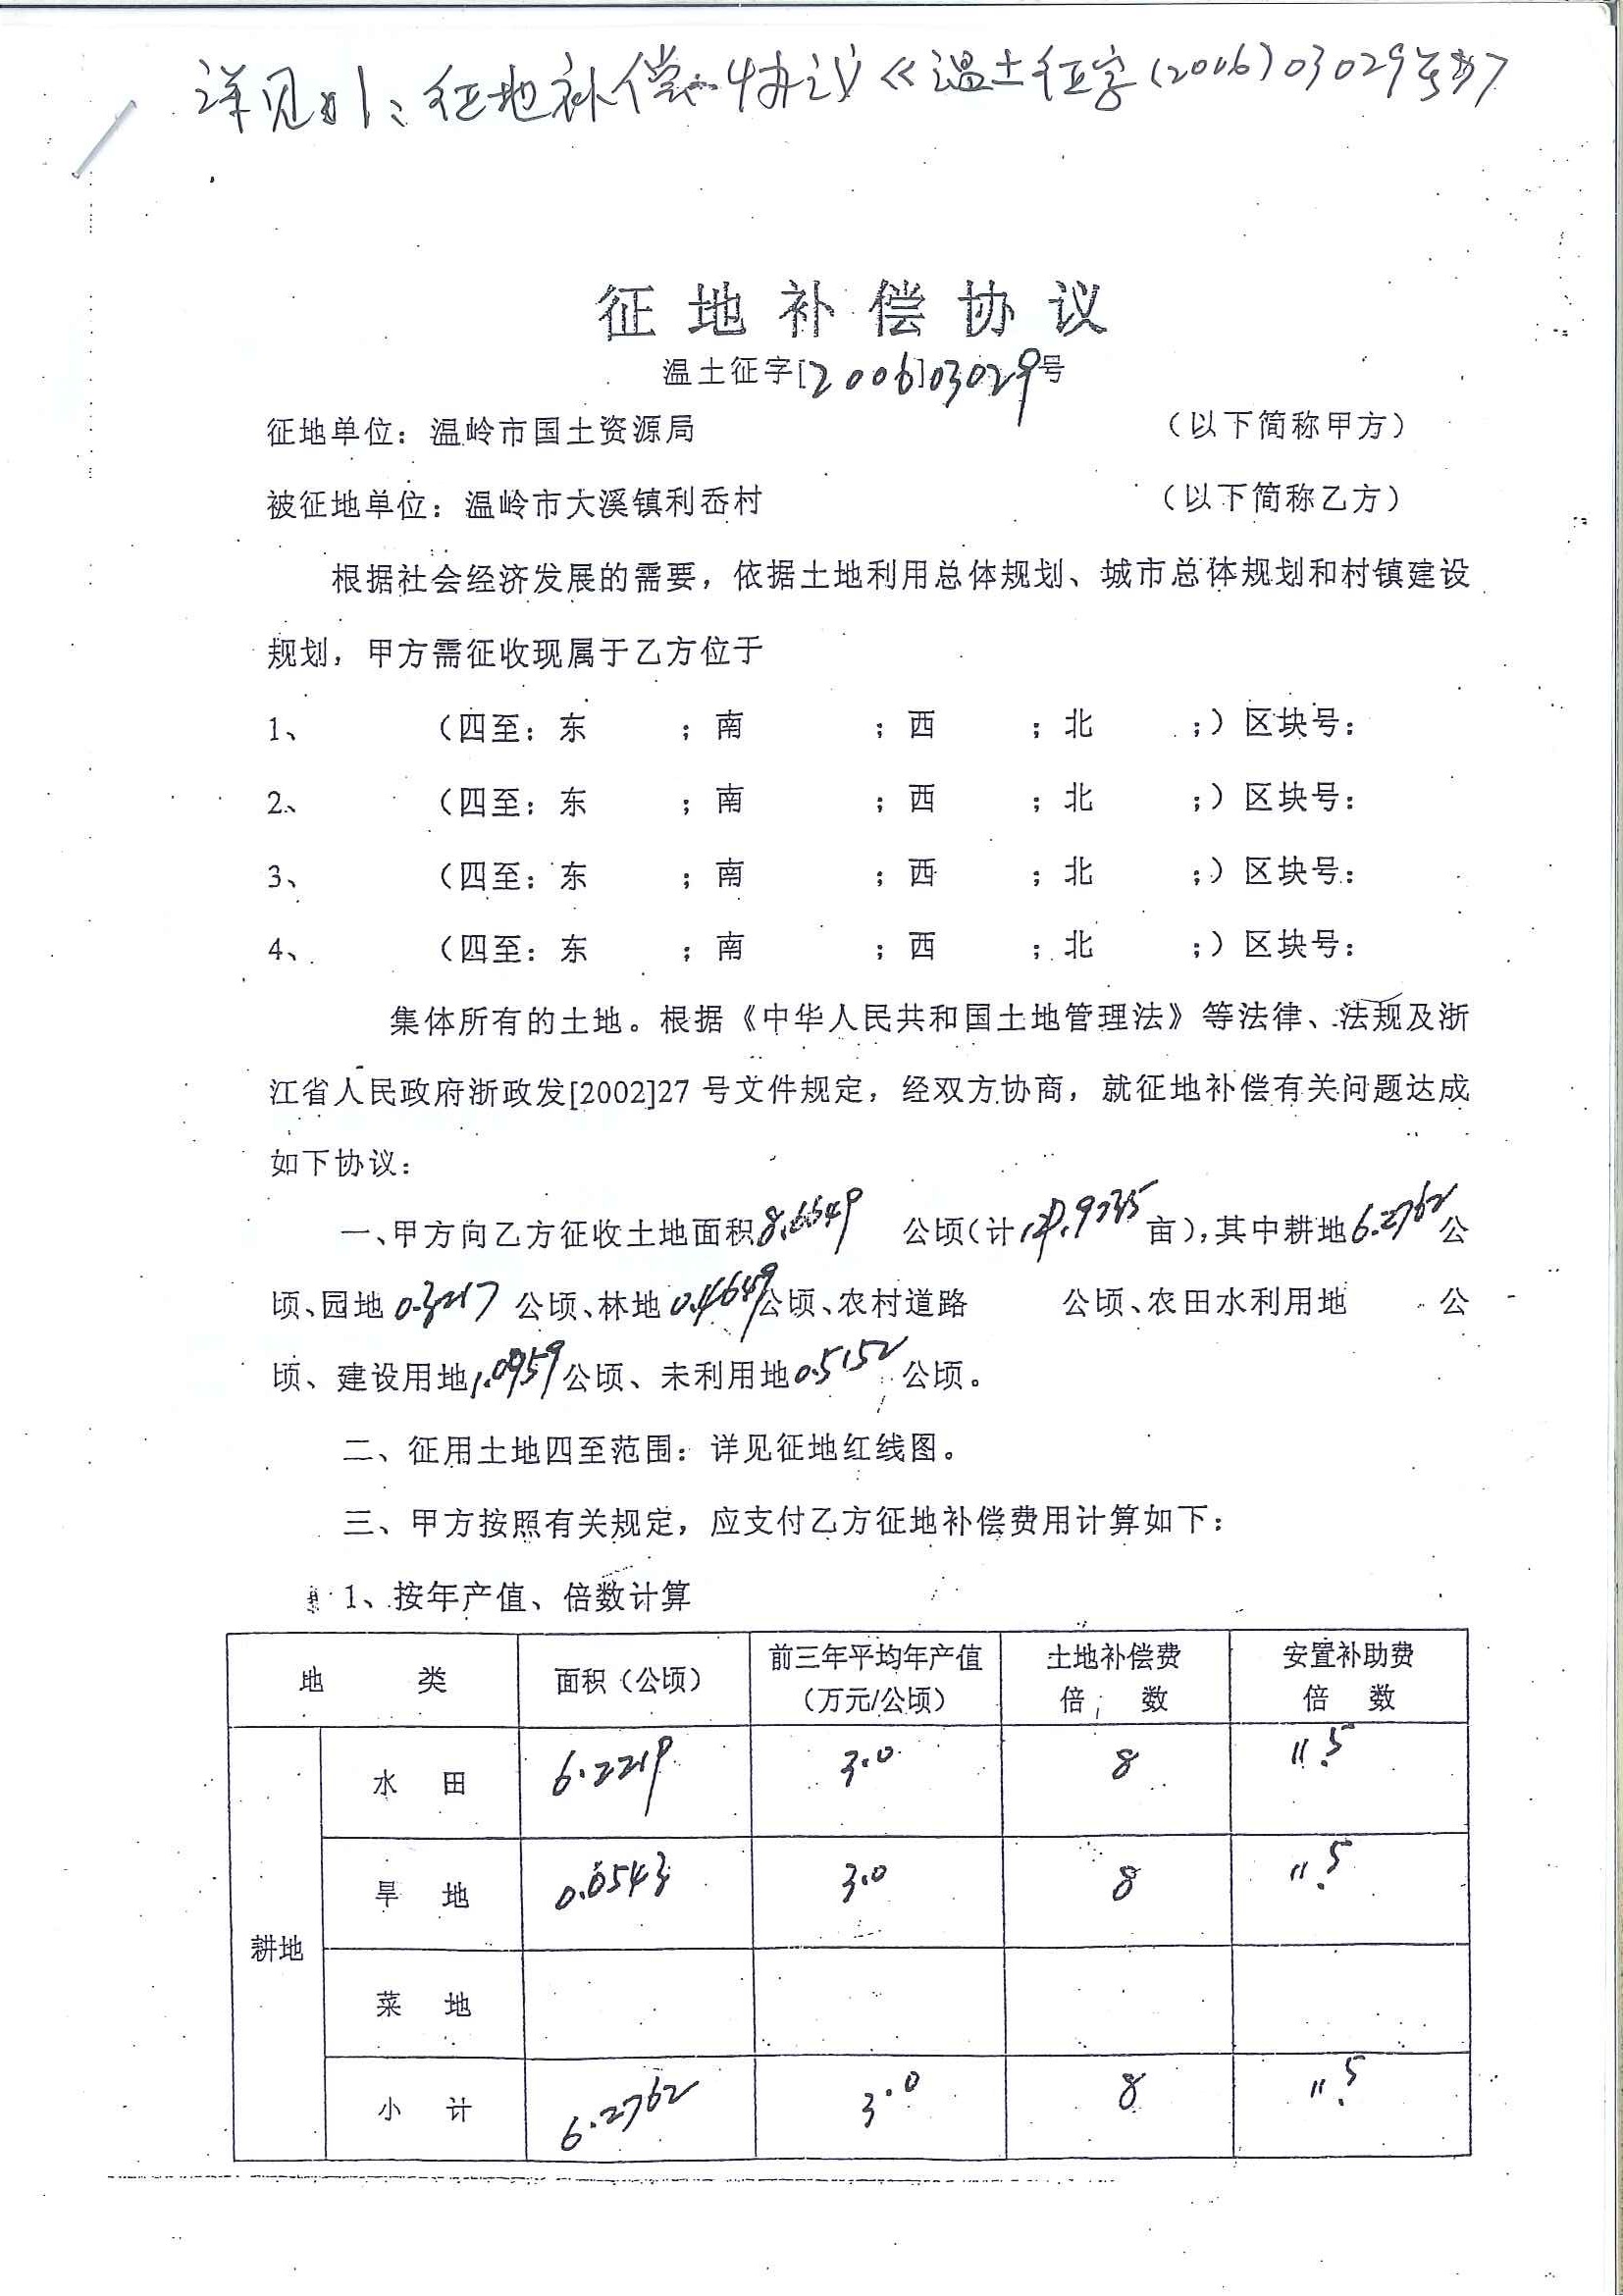 详见21：征地补偿协议《温土征字(2006)03029号》
征地补偿协议
温土征字[2006]03029号
征地单位：温岭市国土资源局 （以下简称甲方）
被征地单位：温岭市大溪镇利岙村 （以下简称乙方）
根据社会经济发展的需要，依据土地利用总体规划、城市总体规划和村镇建设
规划，甲方需征收现属于乙方位于
1、 （四至：东 ；南 ；西 ；北 ；）区块号：
2、 （四至：东 ；南 ；西 ；北 ；）区块号：
3、 （四至：东 ；南 ；西 ；北 ；）区块号：
4、 （四至：东 ；南 ；西 ；北 ；）区块号：
集体所有的土地。根据《中华人民共和国土地管理法》等法律、法规及浙
江省人民政府浙政发[2002]27 号文件规定，经双方协商，就征地补偿有关问题达成
如下协议：
一、甲方向乙方征收土地面积 公顷（计 亩），其中耕地6.2762公
顷、园地0.3217 公顷、林地0.4649公顷、农村道路 公顷、农田水利用地 公
顷、建设用地1.0959公顷、未利用地0.5152公顷。
二、征用土地四至范围：详见征地红线图。
三、甲方按照有关规定，应支付乙方征地补偿费用计算如下：
1、按年产值、倍数计算
地 类 面积（公顷） 前三年平均年产值（万元/公顷） 土地补偿费倍 数 安置补助费倍 数
耕地
水 田 6.2219 3.0 8 11.5
旱 地 0.0543 3.0 8 11.5
菜 地
小 计 6.2762 3.0 8 11.5